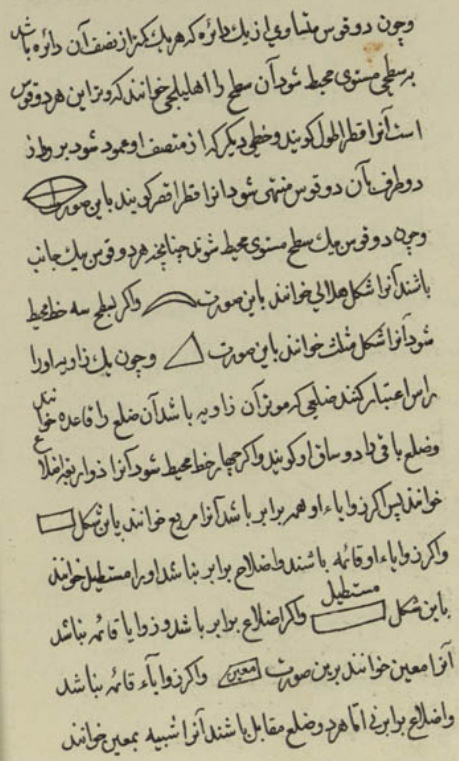 وچون دو قوس متساوی از یک دائره که هر یک کمتر از نصف آن دائره باشد
بر سطحی مستوی محیط شود آن سطح را اهلیلجی خوانند که وتر این هر دو قوس
است آنرا قطر اطول کویند و خطی دیکر که از منتصف او عمود شود بر و از
دو طرف بآن دو قوس منتهی شود انرا قطر اقصر کویند باین صورت
وچون دو قوس بیک سطح مستوی محیط شوند چنانچه هر دو قوس بیک جانب
باشند آنرا شکل هلالی خوانند باین صورت واکر بسطح سه خط محیط
شود آنرا شکل مثلث خوانند باین صورت وچون یک زاویه او را
راس اعتبار کنند ضلعی که موتر آن زاویه باشد آن ضلع را قاعده خوانند
وضلع باقی را دو ساق او کویند واکر چهار خط محیط شود آنرا ذو اربعة اضلاع
خوانند پس اکر زوایاء او همه برابر باشد آنرا مربع خوانند باین شکل
واکر زوایاء او قائمه باشند واضلاع برابر نباشد او را مستطیل خوانند
باین شکل مستطیل واکر اضلاع برابر باشد و زوایا قائمه نباشد
آنرا معین خوانند برین صورت معین واکر زوایاء قائمه نباشد
واضلاع برابر نی اما هر دو ضلع مقابل باشند آنرا شبیه بمعین خوانند